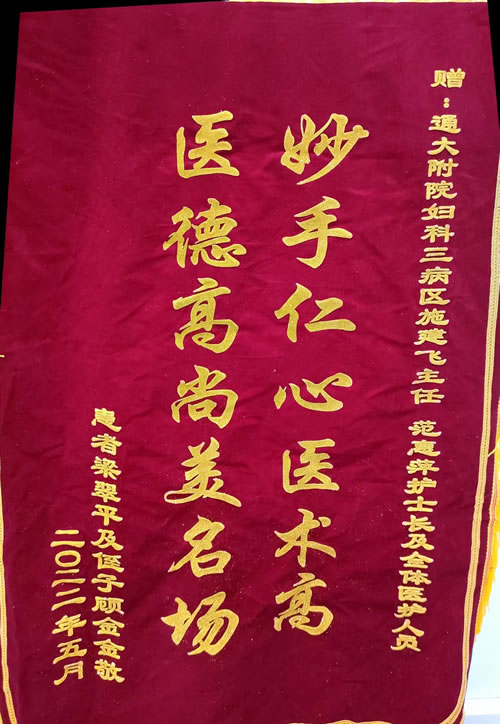 赠：通大附院妇科三病区施建飞主任 范惠萍护士长及全体医护人员
妙手仁心医术高
医德高尚美名场
患者梁翠平及侄子顾金金敬
二〇二二年五月